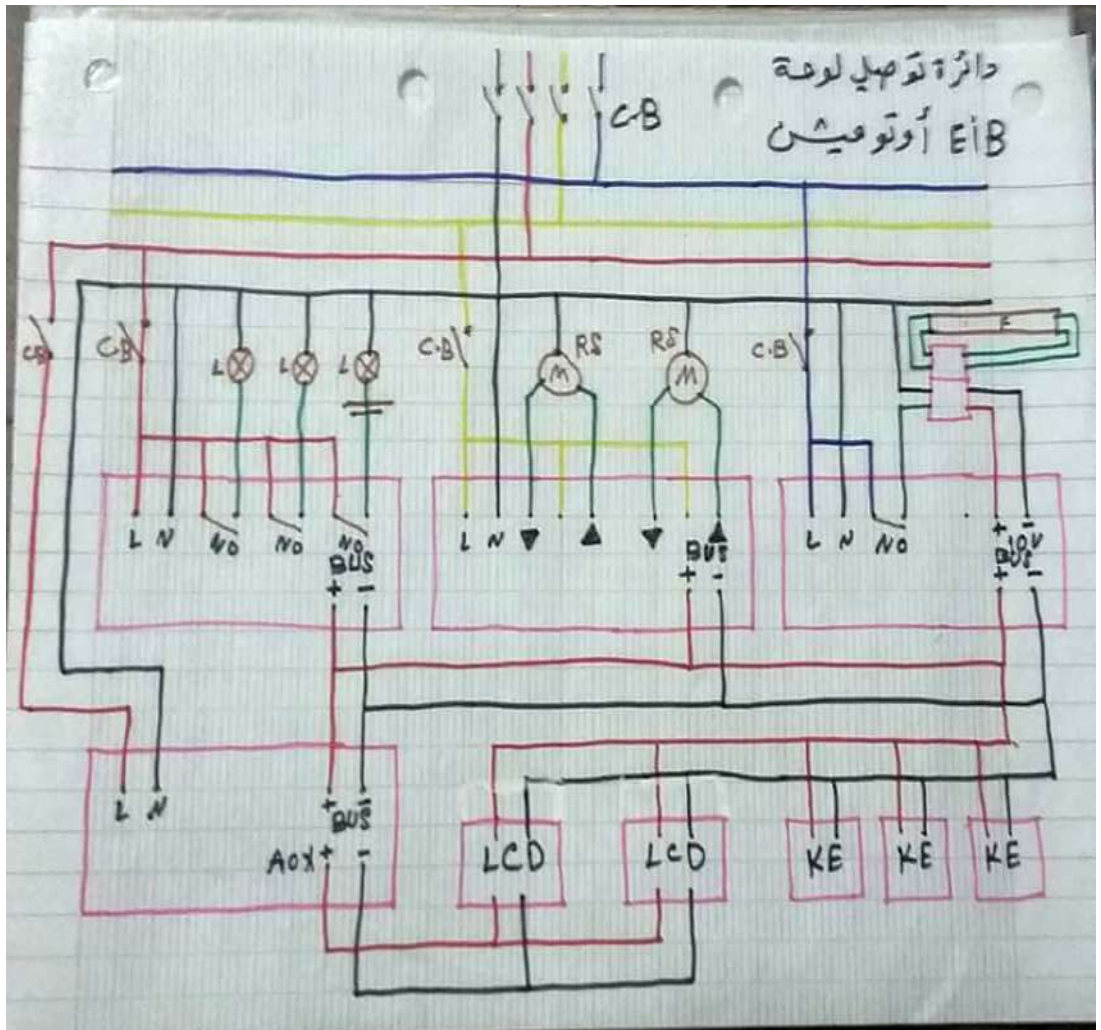 دائرة توصيل لوحة
EiB أوتوميشن
C.B
C.B
C.B
L
L
L
C.B
RS
M
RS
M
C.B
L N NO NO NO
BUS
+ -
L N ▼ ▲ ▼ ▲
BUS
+ -
L N NO
+ -
10V
BUS
+ -
L N
+ -
BUS
AOX + -
LCD
LCD
KE
KE
KE